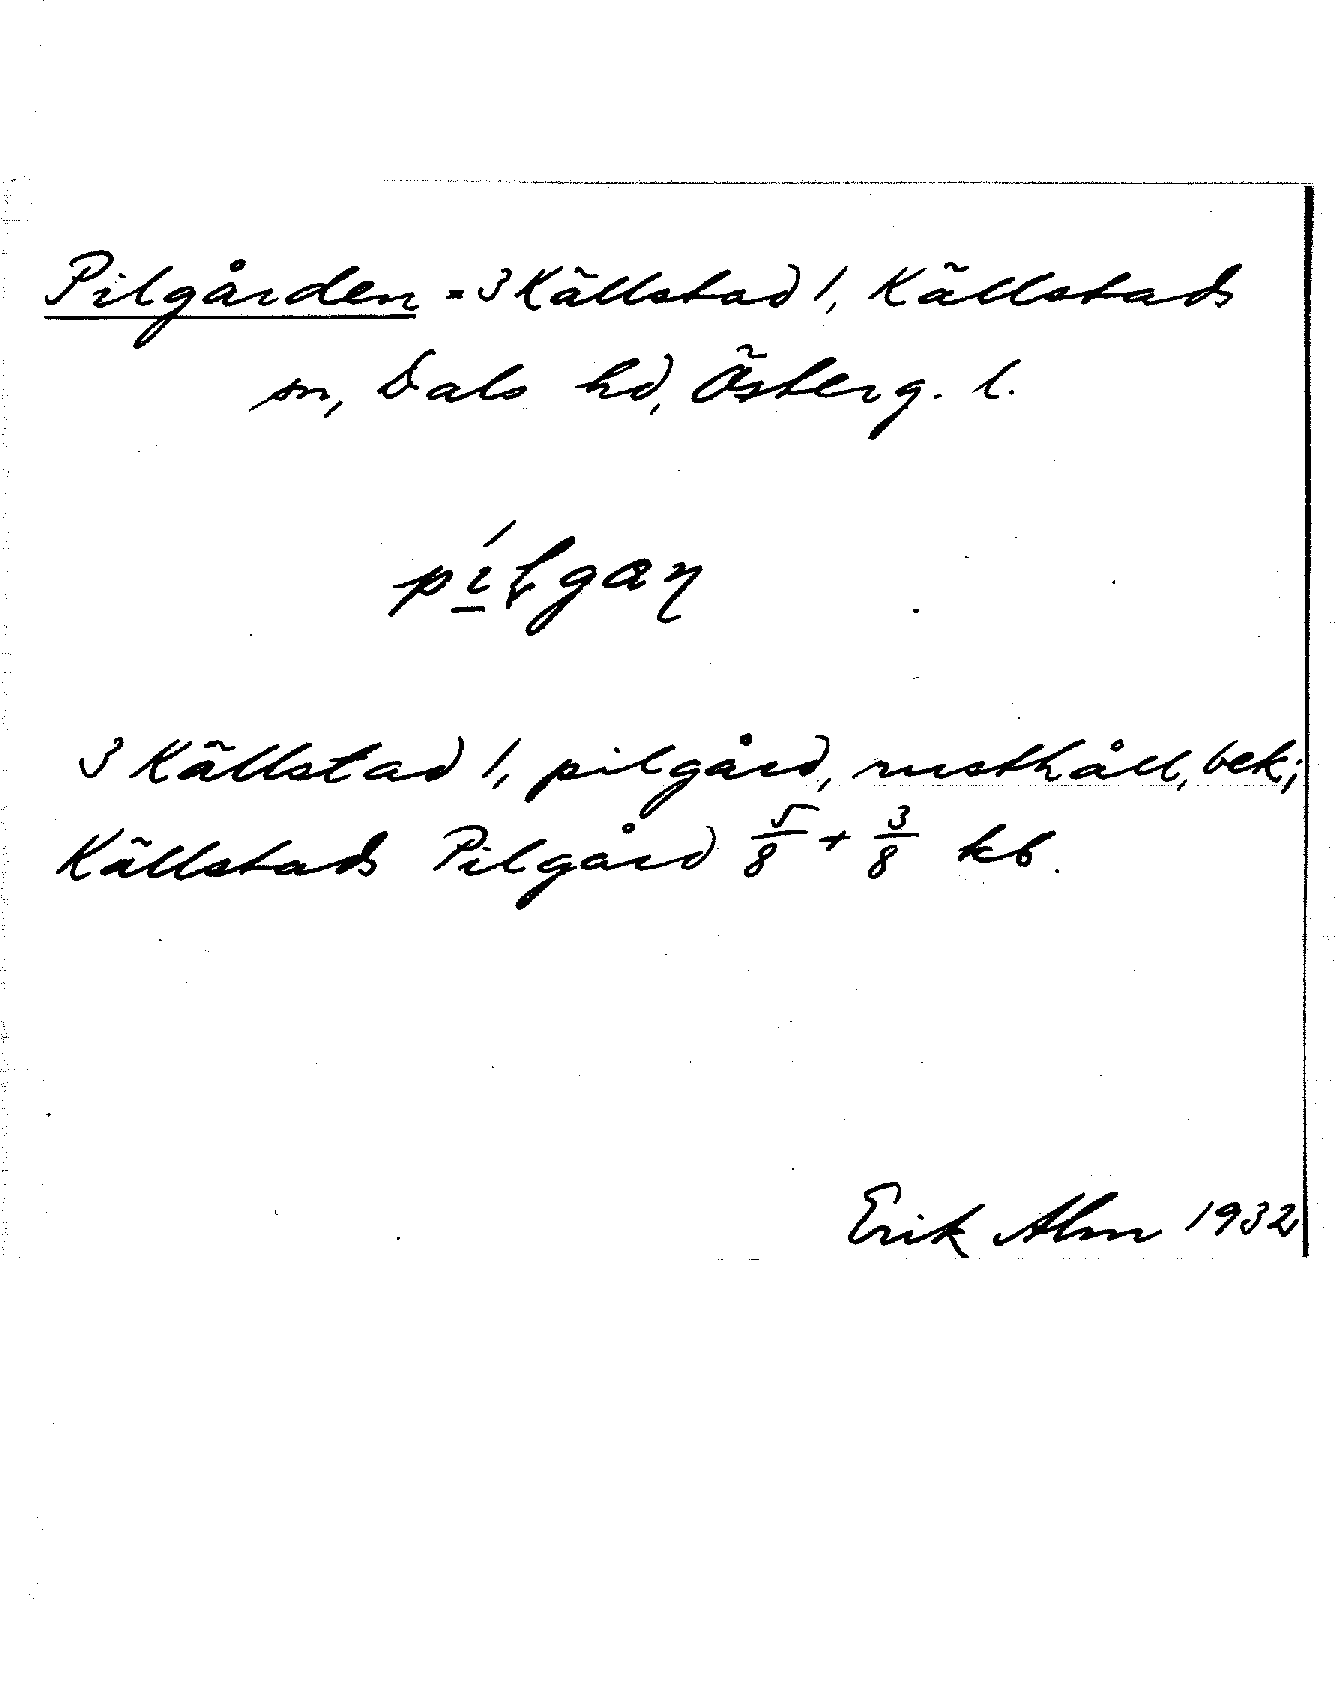 Pilgården = 3 Källstad 1, Källstads
sn, Dals hd, Österg. l.
3 Källstad 1, pilgård, rusthåll, bek;
Källstads Pilgård 5/8 + 3/8 kb.
Erik Alm 1932